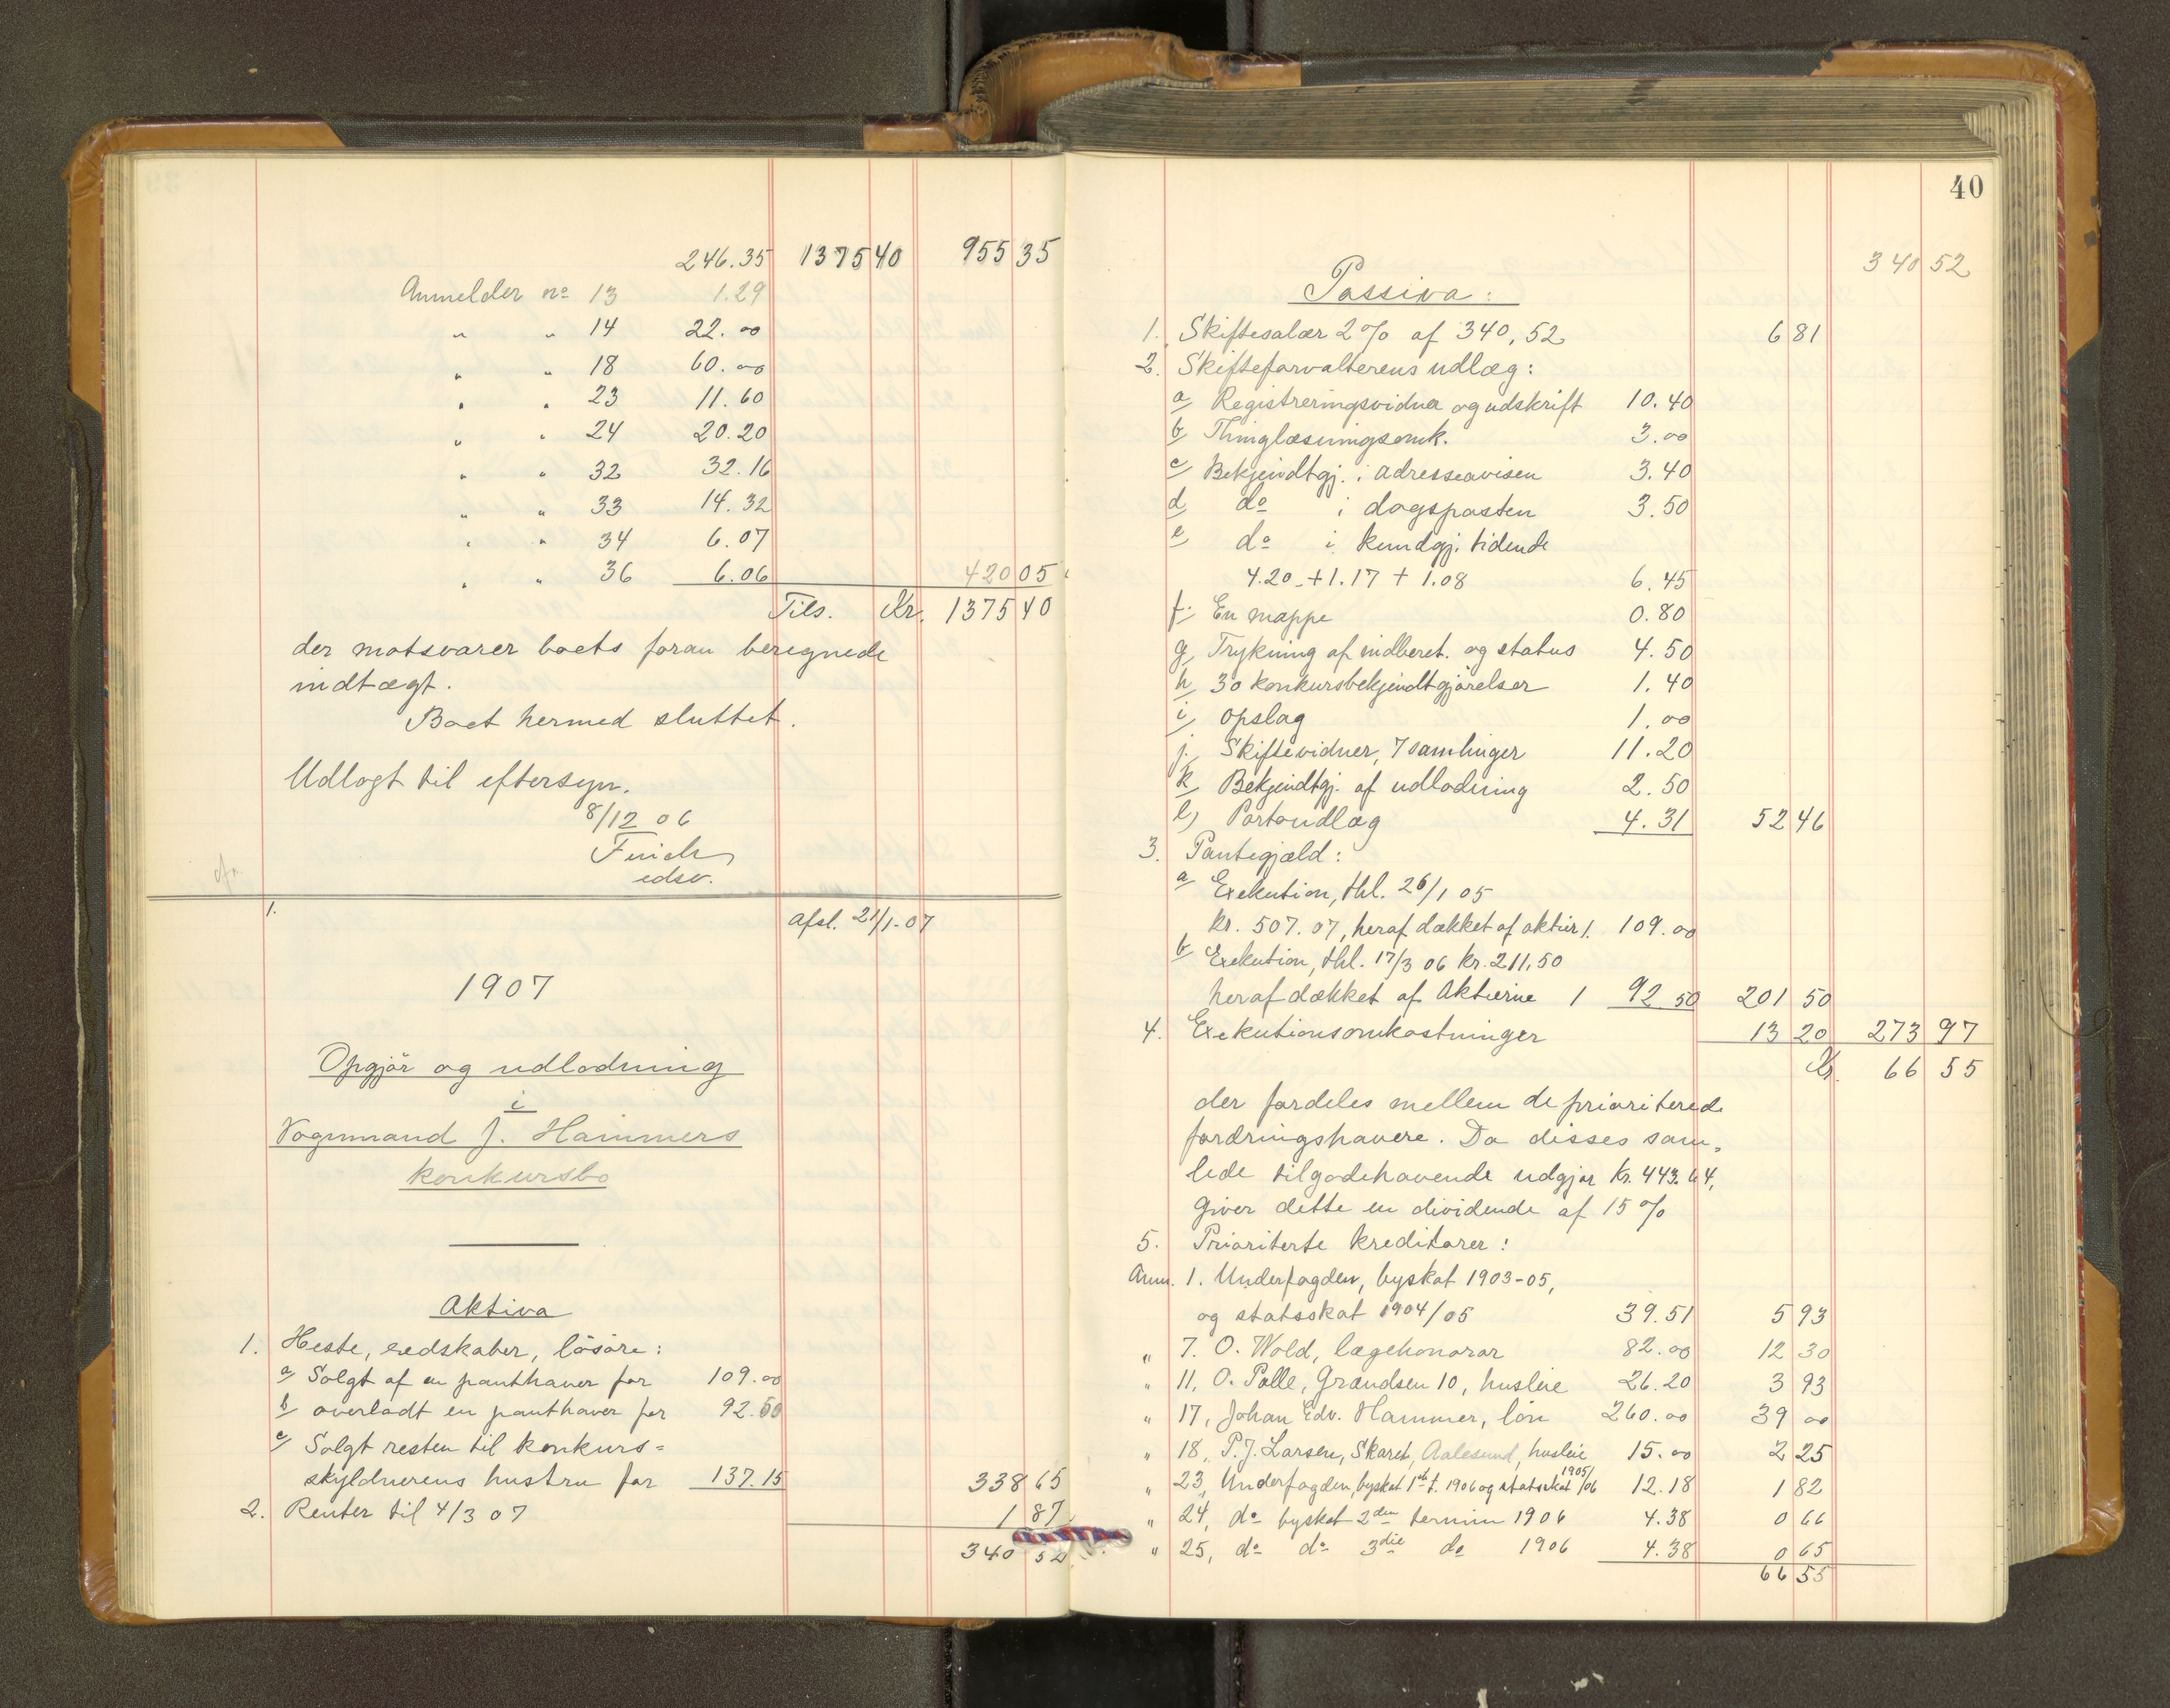 246.35 1375 40 955 35
Anmelder no 13 1.29
" " 14 22.00
" " 18 60.00
" " 23 11.60
" " 24 20.20
" " 32 32.16
" " 33 14.32
" " 34 6.07
" " 36 6.06 420 05
Tils. Kr. 1375 40
der motsvarer boets foran beregnede
indtægt.
Boet hermed sluttet.
Udlagt til eftersyn.
8/12 06
edsv.
1. Afsl. 21/1-07
1907
Opgjör og udlodning
i
Vognmand J. Hammers
konkursbo
Aktiva
1. Heste, redskaber, lösöre:
a/ Solgt af en panthaver for 109.00
b/ overladt en panthaver for 92.50
c/ Solgt resten til konkurs=
skyldnerens hustru for 137.15 338 65
2. Renter til 4/3 07 1 87
340 52
40
340 52
Passiva:
1. Skiftesalær 2% af 340,52 6 81
2. Skifteforvalterens udlæg:
a/ Registreringsvidner og udskrift 10.40
b/ Thinglæsningsomk. 3.00
c/ Bekjendtgj. i adresseavisen 3.40
d/ do i dagsposten 3.50
e/ do i kundgj. tidende
4.20 + 1.17 + 1.08 6.45
f. En mappe 0.80
g, Trykning af indberet. og status 4.50
h, 30 konkursbekjendtgjörelser 1.40
i, opslag 1.00
j. Skiftevidner, 7 samlinger 11.20
k, Bekjendtgj. af udlodning 2.50
l) Portoudlæg 4.31 52 46
3. Pantegjæld:
a/ Exekution, thl. 26/1 05
kr. 507.07, heraf dækket af aktiv 1. 109.00
b/ Exekution, thl. 17/3 06 kr. 211,50
heraf dækket af Aktiverne 1 92 50 201 50
4. Exekutionsomkostninger 13 20 273 97
Kr. 66 55
der fordeles mellem de prioriterede
fordringshavere. Da disses sam-
lede tilgodehavende udgjör Kr. 443.64,
giver dette en dividende af 15%
5. Prioriterte kreditorer:
Anm. 1. Underfogden, byskat 1903-05,
og statsskat 1904/05 39.51 5 93
" 7. O. Wold, lægehonorar 82.00 12 30
" 11, O. Palle, Grændsen 10, husleie 26.20 3 93
" 17, Johan Edv. Hammer, lön 260.00 39 00
" 18, P. J. Larsen, Skaret, Aalesund, husleie 15.00 2 25
" 23, Underfogden, byskat 1ste t. 1906 og statsskat 1905/06 12.18 1 82
" 24, do byskat 2den termin 1906 4.38 0 66
" 25, do do 3die do 1906 4.38 0 65
66 55